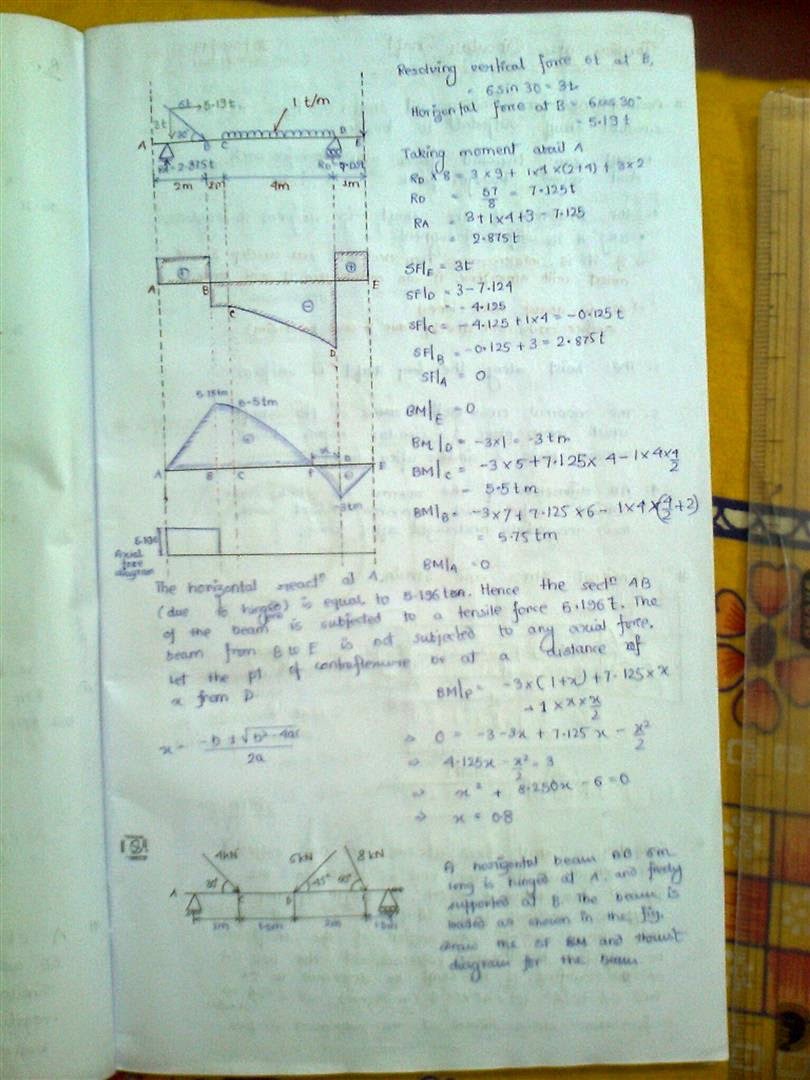 Resolving vertical force 6t at B,
= 6 sin 30 = 3t
Horizontal force at B = 6 cos 30°
= 5.19 t
6t
5.19 t
3t
30°
1 t/m
A B C D E
= 2.875t
RD =
2m 2m 4m 1m
Taking moment about A
RD × 8 = 3 × 9 + 1×4 × (2+4) + 3×2
RD = 57/8 = 7.125t
RA = 3+1×4+3 - 7.125
= 2.875t
A B C D E
SF|E = 3t
SF|D = 3 - 7.124
= - 4.125
SF|C = - 4.125 + 1×4 = -0.125 t
SF|B = -0.125 + 3 = 2.875t
SF|A = 0
5.75tm 5.5tm
x
A B C P D E
-3tm
BM|E = 0
BM|D = -3×1 = -3 tm
BM|C = -3×5 + 7.125× 4 - 1×4×4/2
= 5.5 tm
BM|B = -3×7 + 7.125 ×6 - 1×4×(4/2+2)
= 5.75 tm
BM|A = 0
5.196
Axial
force
diagram
The horizontal reactⁿ at A.
(due to hinged) is equal to 5.196 ton. Hence the sectⁿ AB
of the beam is subjected to a tensile force 5.196 t. The
beam from B to E is not subjected to any axial force.
Let the pt of contraflexure be at a distance of
x from D
BM|P = -3×(1+x) + 7.125 × x
- 1 × x × x/2
x = -b ± √b²-4ac / 2a
⇒ 0 = -3-3x + 7.125x - x²/2
⇒ 4.125x - x²/2 = 3
⇒ x² + 8.250x - 6 = 0
⇒ x = 0.8
4kN 6kN 8kN
A C D
45°
1m 1.5m 2m
A horizontal beam AB 6m
long is hinged at A, and freely
supported at B. The beam is
loaded as shown in the fig.
draw the SF BM and thrust
diagram for the beam